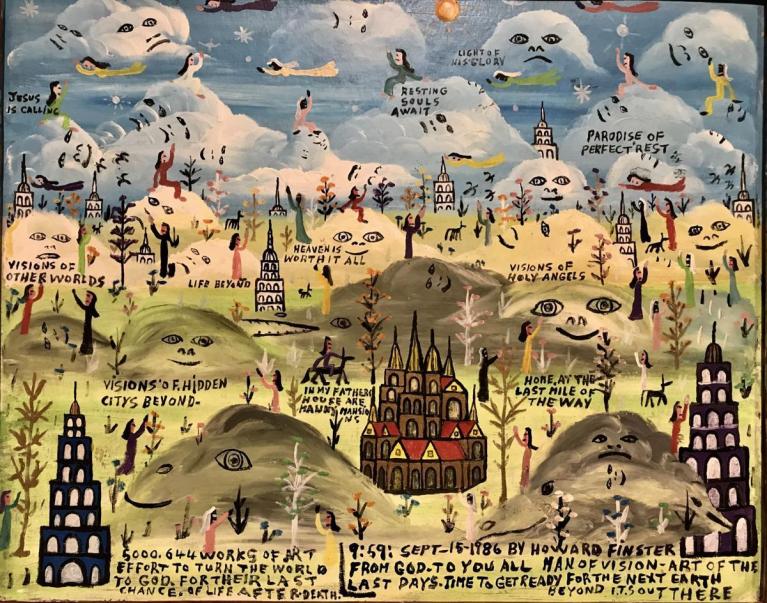 LIGHT OF
HIS GLORY
JESUS
IS CALLING
RESTING
SOULS
AWAIT
PARODISE OF
PERFECT REST
HEAVEN IS
WORTH IT ALL
VISIONS OF
OTHER WORLDS
LIFE BEYOND
VISIONS OF
HOLY ANGELS
VISIONS OF HIDDEN
CITYS BEYOND-
IN MY FATHERS
HOUSE ARE
MANNY MANSIO
NS
HOME, AT THE
LAST MILE OF
THE WAY
5000.644 WORKS OF ART
EFFORT TO TURN THE WORLD
TO GOD. FOR THEIR LAST
CHANCE. OF LIFE AFTER-DEATH.
9:59: SEPT-15-1986 BY HOWARD FINSTER
FROM GOD. TO YOU ALL MAN OF VISION-ART OF THE
LAST DAYS. TIME TO GET READY FOR THE NEXT EARTH
BEYOND ITS OUT THERE